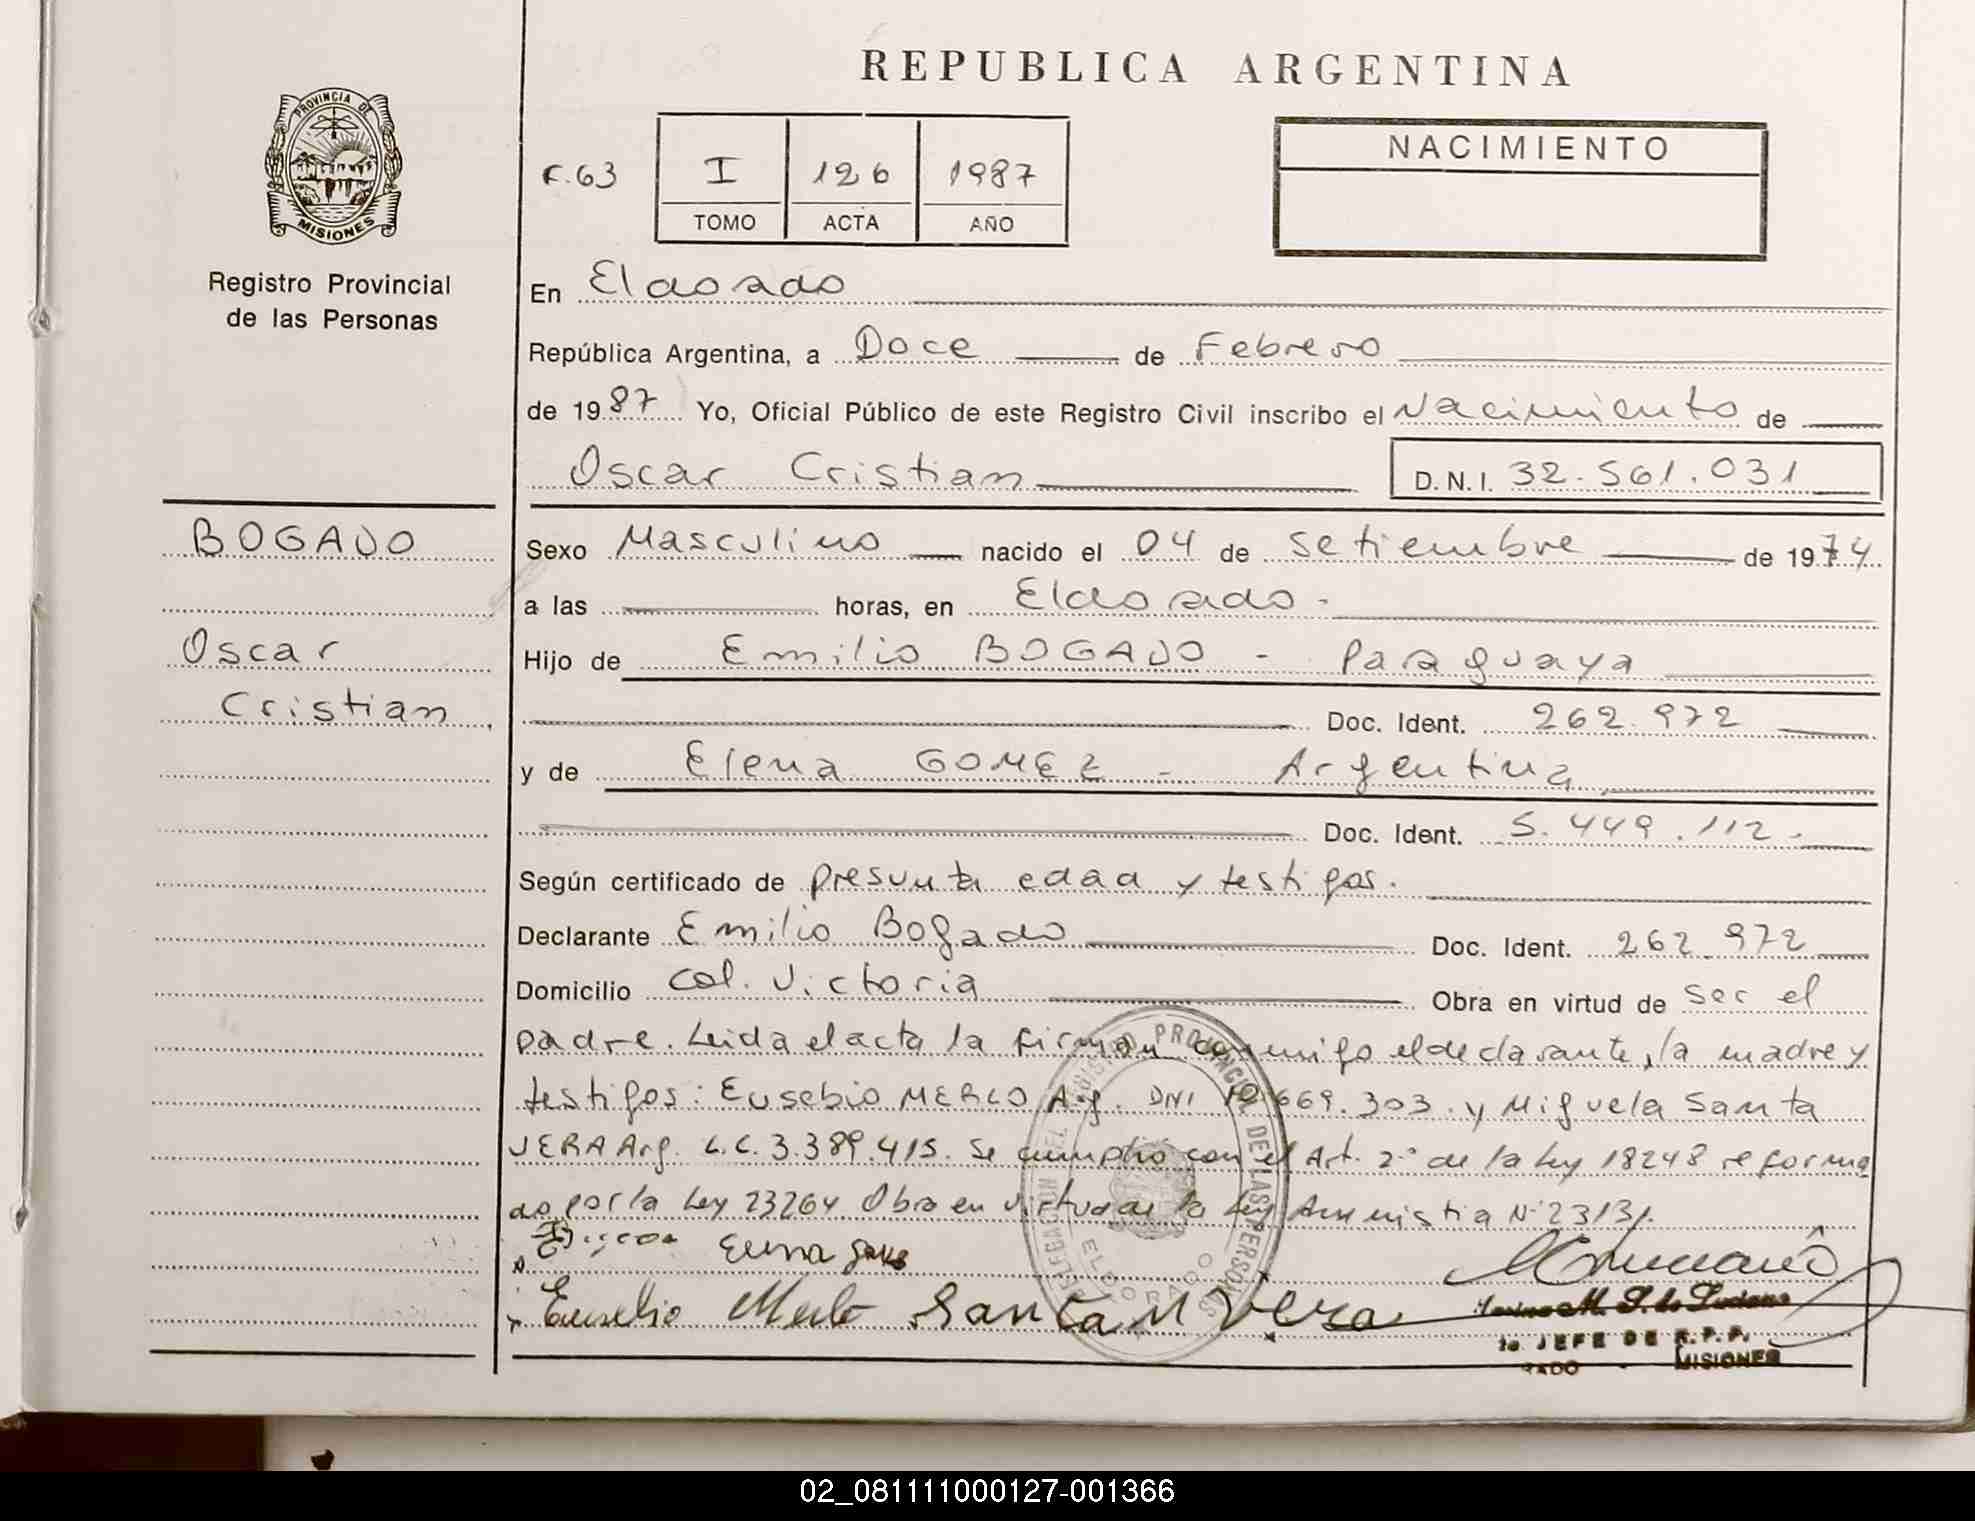 REPUBLICA ARGENTINA
PROVINCIA DE
MISIONES
Registro Provincial
de las Personas
NACIMIENTO
F.63
I 126 1987
TOMO ACTA AÑO
En Eldorado
República Argentina, a Doce de Febrero
de 1987 Yo, Oficial Público de este Registro Civil inscribo el Nacimiento de
Oscar Cristian D.N.I. 32.561.031
BOGADO
Oscar
Cristian
Sexo Masculino nacido el 04 de Setiembre de 1974
a las horas, en Eldorado.
Hijo de Emilio BOGADO - Paraguaya
Doc. Ident. 262.972
y de Elena GOMEZ - Argentina
Doc. Ident. 5.449.112.
Según certificado de presunta edad y testigos.
Declarante Emilio Bogado Doc. Ident. 262.972
Domicilio Col. Victoria Obra en virtud de ser el
padre. Leida el acta la firman conmigo el declarante, la madre y
testigos: Eusebio MERLO Arg. DNI 10.669.303. y Miguela Santa
VERA Arg. L.C. 3.389.415. Se cumplió con el Art. 2° de la Ley 18248 reforma
do por la Ley 23264 Obra en virtud de la Ley Amnistia N° 23131.
Eusebio Merlo Santa M Vera
DELEGACION DEL REGISTRO PROVINCIAL DE LAS PERSONAS
ELDORADO
JEFE DE R.P.P.
MISIONES
02_081111000127-001366